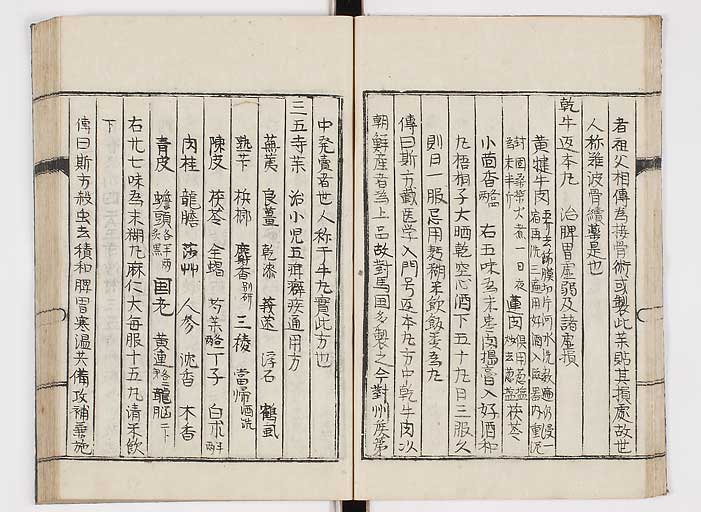 者祖父相傳為接骨術或製此茶貼其損處故世
人称難波骨續藥是也
乾牛返本丸　治脾胃虛弱及諸虛損
黃犍牛肉
一日夜　蓮肉　茯苓
小茴香　右五味為末牛肉搗膏入好酒和
丸梧桐子大晒乾空心酒下五十丸日三服久
則日一服忌用麪糊米飲飯為丸
傳曰斯方載医学入門号返本丸方中乾牛肉以
朝鮮產者為上品故對馬国多製之今對州族第
中発賣者世人称干牛丸實此方也
三五寺茶　治小児五疳癖疾通用方
蕪荑　良薑　乾漆　莪蒁　浮石　鶴虱
熟芐　檳榔　麝香別研　三稜　當帰酒洗
陳皮　茯苓　全蝎　芍藥　丁子　白朮
肉桂　龍膽　莎艸　人參　沈香　木香
青皮　蟾頭　国老　黃連　龍脳
右廿七味為末糊丸麻仁大每服十五丸清米飲
下
傳曰斯方殺虫去積和脾胃寒溫共備攻補兼施